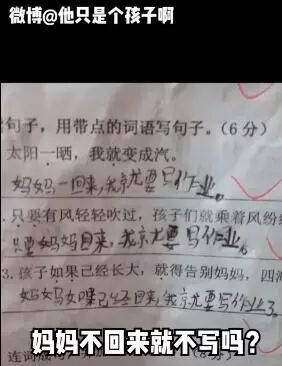 微博@他只是个孩子啊
句子，用带点的词语写句子。（6分）
太阳一晒，我就变成汽。
妈妈一回来，我就要写作业。
.只要有风轻轻吹过，孩子们就乘着风纷
只要妈妈回来，我就要写作业。
3.孩子如果已经长大，就得告别妈妈，四海
妈妈如果已经回来，我就要写作业了
妈妈不回来就不写吗?
连词成
分）